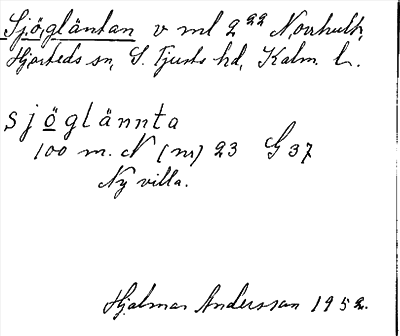 Sjögläntan v ml 2²²² Norrhult,
Hjorteds sn, S. Tjusts hd, Kalm. l.
sjöglännta
100 m. N (nr) 23 G 37
Ny villa.
Hjalmar Andersson 1952.